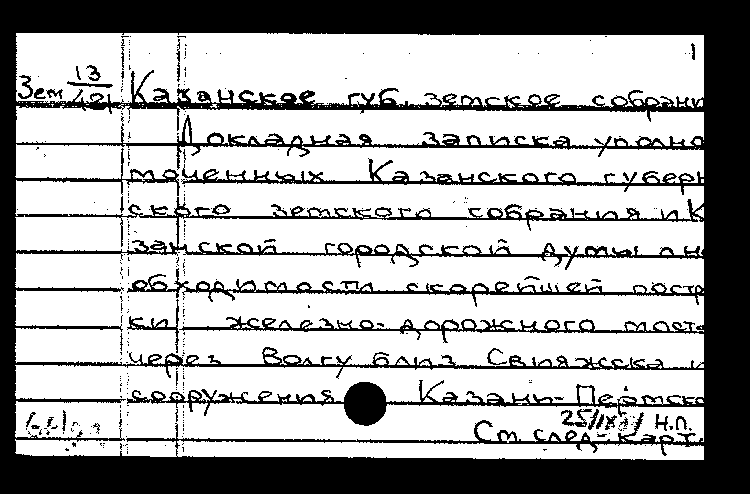 1
Зем 13/421 Казанское губ. земское собрани
Докладная записка уполно
моченных Казанского губерн
ского земского собрания и К
занской городской думы о не
обходимости скорейшей постр
ки железно-дорожного моста
через Волгу близ Свияжска и
сооружения Казань-Пермско
Н.П.
См. след. карт.